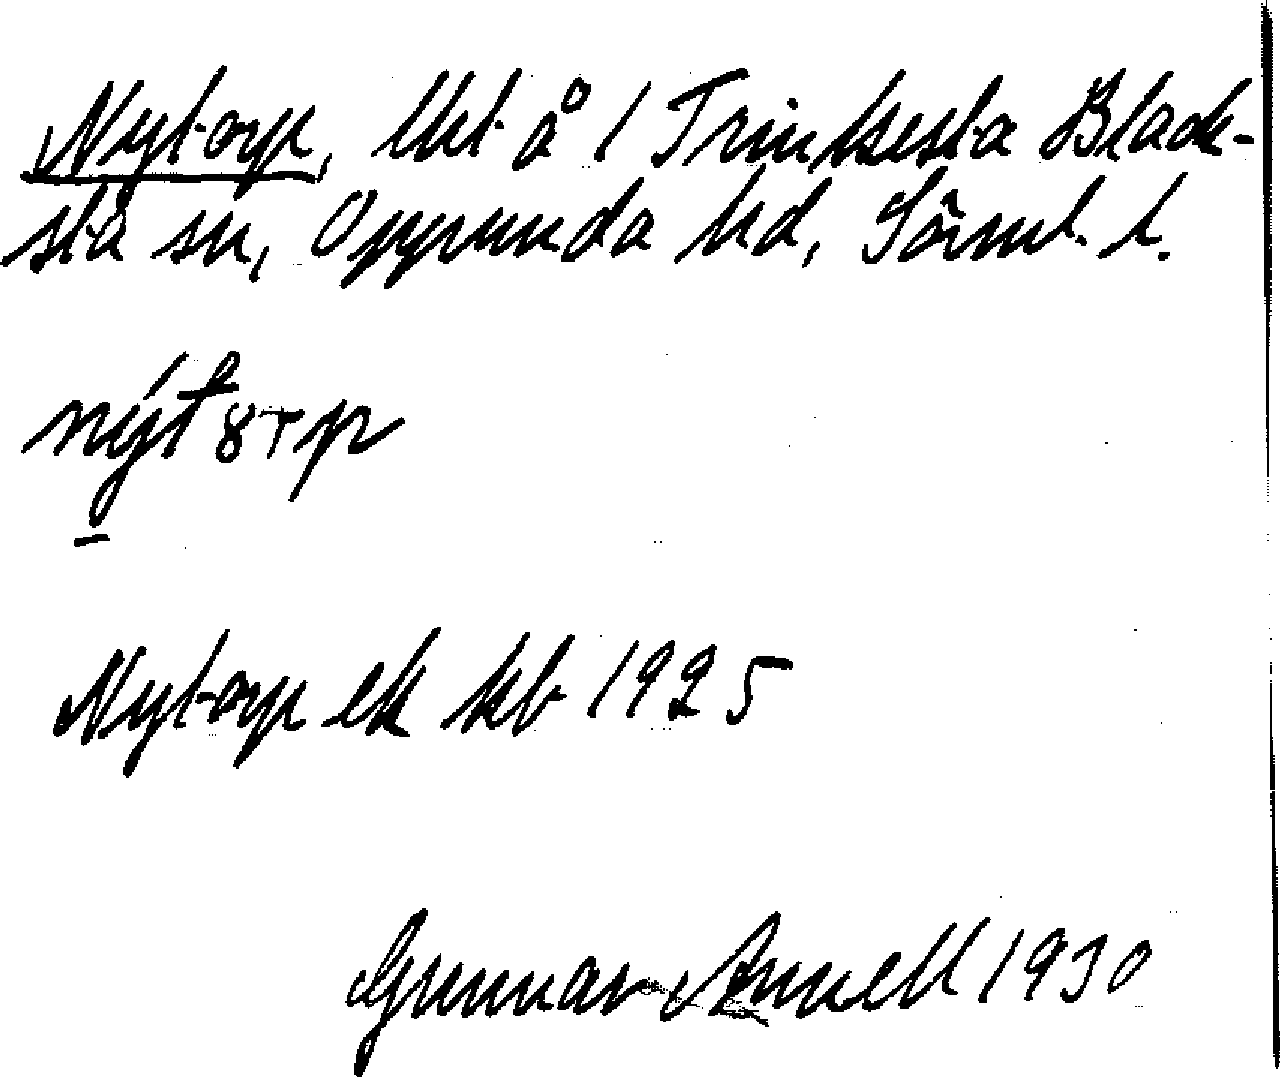 Nytorp, lht å 1 Trinkesta Black-
sta sn, Oppunda hd, Sörml. l.
Nytorp ek kb 1925
Gunnar Annell 1930